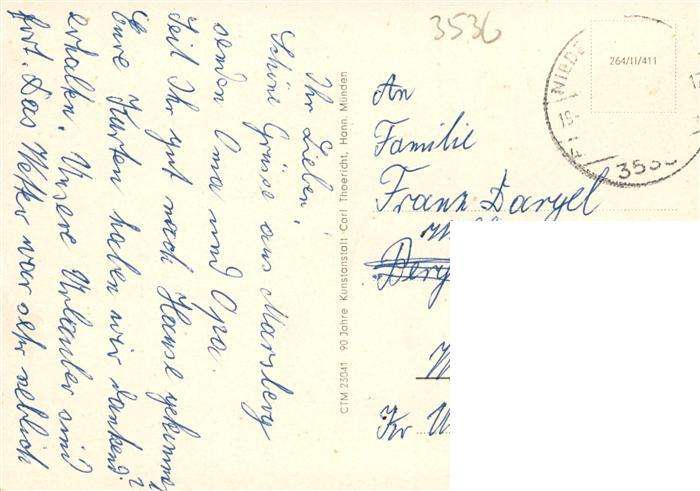 Ihr Lieben!
Schöne Grüsse aus Marsberg
senden Oma und Opa.
Seid Ihr gut nach Hause gekommen?
Eure Karten haben wir dankend
erhalten. Unsere Urlauber sind
fort. Das Wetter war sehr neblich
CTM 23041 90 Jahre Kunstanstalt Carl Thoericht, Hann. Münden
3536
264/II/411
NIEDE
3530
An
Familie
Franz Dargel
Berg
Kr